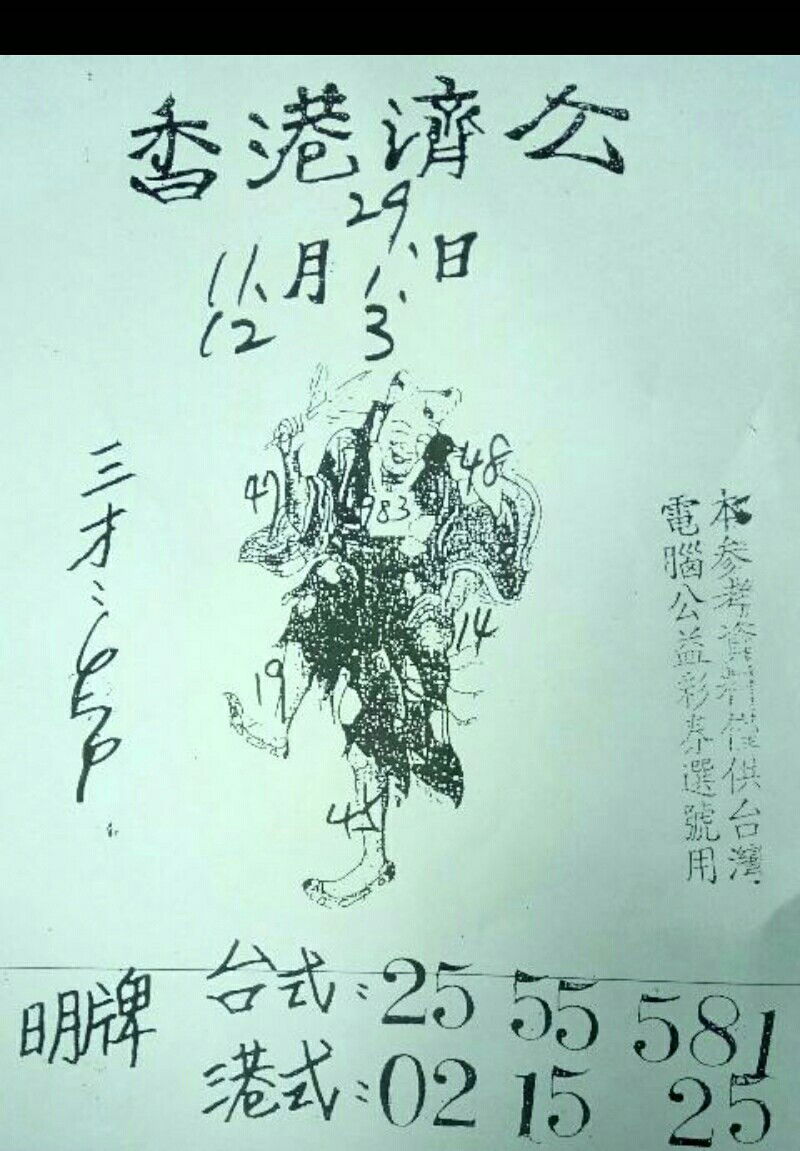 香港濟公
29、
11、月 1、日
12 3
三才:
47
48
983
14
19
45
本參考資料僅供台灣
電腦公益彩券選號用
明牌
台式: 25 55 581
港式: 02 15 25